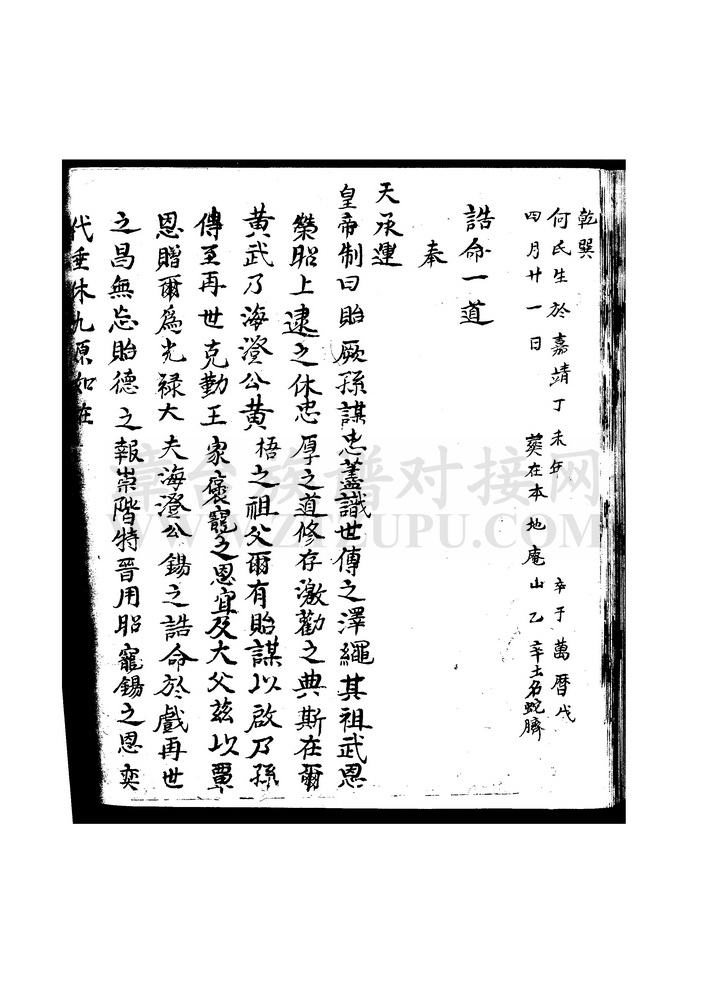 乾巽
何氏生於嘉靖丁未年 卒于萬曆戊
四月廿一日 葬在本地庵山乙辛土名蛇臍
誥命一道
奉
天承運
皇帝制曰貽厥孫謀忠藎識世傳之澤繩其祖武恩
榮昭上逮之休忠厚之道修存激勸之典斯在爾
黃武乃海澄公黃梧之祖父爾有貽謀以啟乃孫
傳至再世克勤王家褒寵之恩宜及大父茲以覃
恩贈爾為光祿大夫海澄公錫之誥命於戲再世
之昌無忘貽德之報崇階特晉用昭寵錫之恩奕
代垂休九原如在
章台族谱对接网
WWW.ZTZUPU.COM